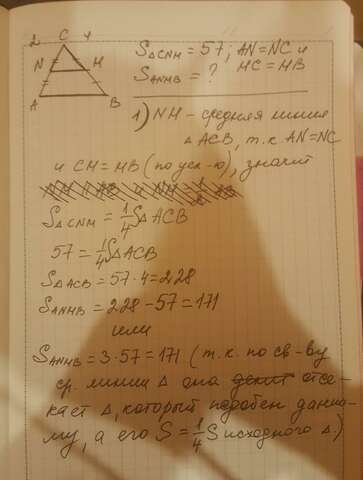 C
N
H
A
B
S△CNH = 57; AN=NC и
HC=HB
S ANHB = ?
1) NH - средняя линия
△ ACB, т.к AN=NC
и CH=HB (по усл-ю), значит
S△CNH = 1/4 S△ACB
57 = 1/4 S△ACB
S△ACB = 57·4=228
S ANHB = 228-57=171
или
S ANHB = 3·57=171 (т.к. по св-ву
ср. линии △ она делит отсе-
кает △, который подобен данно-
му, а его S = 1/4 S исходного △)